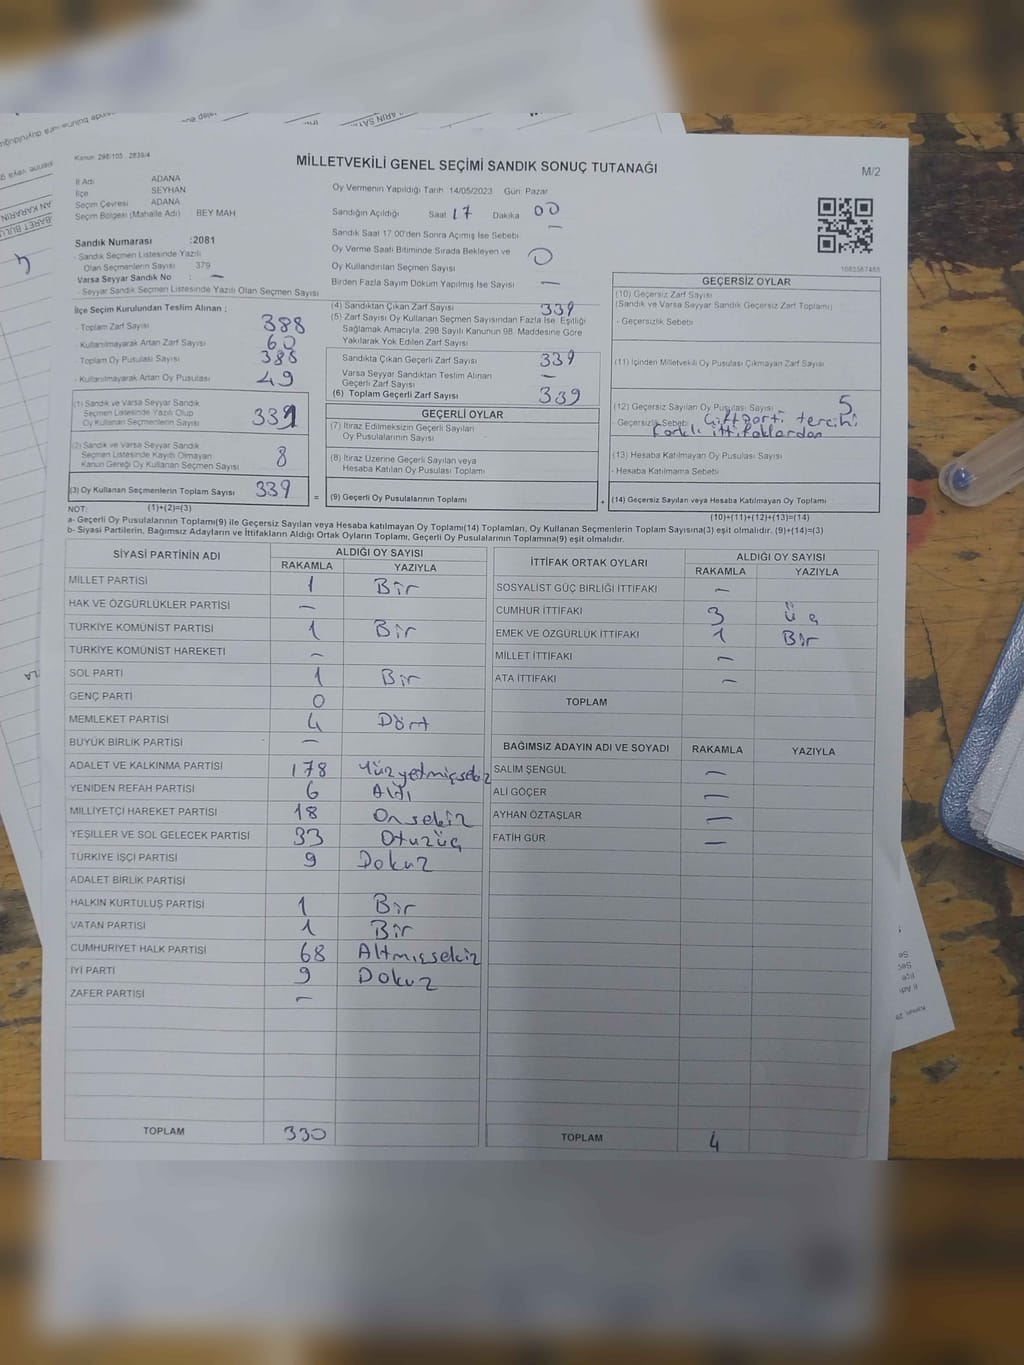 Kanun: 298/105 2839/4
MİLLETVEKİLİ GENEL SEÇİMİ SANDIK SONUÇ TUTANAĞI
M/2
İl Adı ADANA
İlçe SEYHAN
Seçim Çevresi ADANA
Seçim Bölgesi (Mahalle Adı) BEY MAH
Oy Vermenin Yapıldığı Tarih 14/05/2023 Gün: Pazar
Sandığın Açıldığı Saat 17 Dakika 00
Sandık Saat 17.00'den Sonra Açılmış İse Sebebi —
Oy Verme Saati Bitiminde Sırada Bekleyen ve
Oy Kullandırılan Seçmen Sayısı 0
Birden Fazla Sayım Döküm Yapılmış İse Sayısı —
1083567488
Sandık Numarası :2081
- Sandık Seçmen Listesinde Yazılı
Olan Seçmenlerin Sayısı : 379
Varsa Seyyar Sandık No : —
- Seyyar Sandık Seçmen Listesinde Yazılı Olan Seçmen Sayısı
İlçe Seçim Kurulundan Teslim Alınan ;
- Toplam Zarf Sayısı 388
- Kullanılmayarak Artan Zarf Sayısı 60
- Toplam Oy Pusulası Sayısı 388
- Kullanılmayarak Artan Oy Pusulası 49
(1) Sandık ve Varsa Seyyar Sandık
Seçmen Listesinde Yazılı Olup
Oy Kullanan Seçmenlerin Sayısı
(2) Sandık ve Varsa Seyyar Sandık
Seçmen Listesinde Kayıtlı Olmayan
Kanun Gereği Oy Kullanan Seçmen Sayısı 8
(3) Oy Kullanan Seçmenlerin Toplam Sayısı 339
(4) Sandıktan Çıkan Zarf Sayısı 339
(5) Zarf Sayısı Oy Kullanan Seçmen Sayısından Fazla İse, Eşitliği
Sağlamak Amacıyla, 298 Sayılı Kanunun 98. Maddesine Göre
Yakılarak Yok Edilen Zarf Sayısı
Sandıkta Çıkan Geçerli Zarf Sayısı 339
Varsa Seyyar Sandıktan Teslim Alınan
Geçerli Zarf Sayısı —
(6) Toplam Geçerli Zarf Sayısı 339
GEÇERLİ OYLAR
(7) İtiraz Edilmeksizin Geçerli Sayılan
Oy Pusulalarının Sayısı
(8) İtiraz Üzerine Geçerli Sayılan veya
Hesaba Katılan Oy Pusulası Toplamı
= (9) Geçerli Oy Pusulalarının Toplamı
GEÇERSİZ OYLAR
(10) Geçersiz Zarf Sayısı
(Sandık ve Varsa Seyyar Sandık Geçersiz Zarf Toplamı)
- Geçersizlik Sebebi
(11) İçinden Milletvekili Oy Pusulası Çıkmayan Zarf Sayısı
(12) Geçersiz Sayılan Oy Pusulası Sayısı 5
- Geçersizlik Sebebi Çift parti tercihi
farklı ittifaklardan
(13) Hesaba Katılmayan Oy Pusulası Sayısı
- Hesaba Katılmama Sebebi
+ (14) Geçersiz Sayılan veya Hesaba Katılmayan Oy Toplamı
NOT: (1)+(2)=(3)
(10)+(11)+(12)+(13)=(14)
a- Geçerli Oy Pusulalarının Toplamı(9) ile Geçersiz Sayılan veya Hesaba katılmayan Oy Toplamı(14) Toplamları, Oy Kullanan Seçmenlerin Toplam Sayısına(3) eşit olmalıdır. (9)+(14)=(3)
b- Siyasi Partilerin, Bağımsız Adayların ve İttifakların Aldığı Ortak Oyların Toplamı, Geçerli Oy Pusulalarının Toplamına(9) eşit olmalıdır.
SİYASİ PARTİNİN ADI ALDIĞI OY SAYISI
RAKAMLA YAZIYLA
MİLLET PARTİSİ 1 Bir
HAK VE ÖZGÜRLÜKLER PARTİSİ —
TÜRKİYE KOMÜNİST PARTİSİ 1 Bir
TÜRKİYE KOMÜNİST HAREKETİ —
SOL PARTİ 1 Bir
GENÇ PARTİ 0
MEMLEKET PARTİSİ 4 Dört
BÜYÜK BİRLİK PARTİSİ —
ADALET VE KALKINMA PARTİSİ 178 Yüzyetmişsekiz
YENİDEN REFAH PARTİSİ 6 Altı
MİLLİYETÇİ HAREKET PARTİSİ 18 Onsekiz
YEŞİLLER VE SOL GELECEK PARTİSİ 33 Otuzüç
TÜRKİYE İŞÇİ PARTİSİ 9 Dokuz
ADALET BİRLİK PARTİSİ
HALKIN KURTULUŞ PARTİSİ 1 Bir
VATAN PARTİSİ 1 Bir
CUMHURİYET HALK PARTİSİ 68 Altmışsekiz
İYİ PARTİ 9 Dokuz
ZAFER PARTİSİ —
TOPLAM 330
İTTİFAK ORTAK OYLARI ALDIĞI OY SAYISI
RAKAMLA YAZIYLA
SOSYALİST GÜÇ BİRLİĞİ İTTİFAKI —
CUMHUR İTTİFAKI 3 Üç
EMEK VE ÖZGÜRLÜK İTTİFAKI 1 Bir
MİLLET İTTİFAKI —
ATA İTTİFAKI —
TOPLAM
BAĞIMSIZ ADAYIN ADI VE SOYADI RAKAMLA YAZIYLA
SALİM ŞENGÜL —
ALİ GÖÇER —
AYHAN ÖZTAŞLAR —
FATİH GÜR —
TOPLAM 4